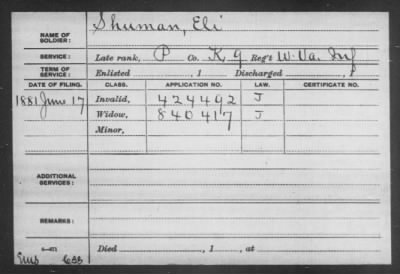 NAME OF SOLDIER: Shuman, Eli
SERVICE: Late rank, P Co. K, 9 Reg't W. Va. Inf
TERM OF SERVICE: Enlisted , 1 Discharged , 1
DATE OF FILING. CLASS. APPLICATION NO. LAW. CERTIFICATE NO.
1881 June 17 Invalid, 424492 J
Widow, 840417 J
Minor,
ADDITIONAL SERVICES:
REMARKS:
Died , 1 , at